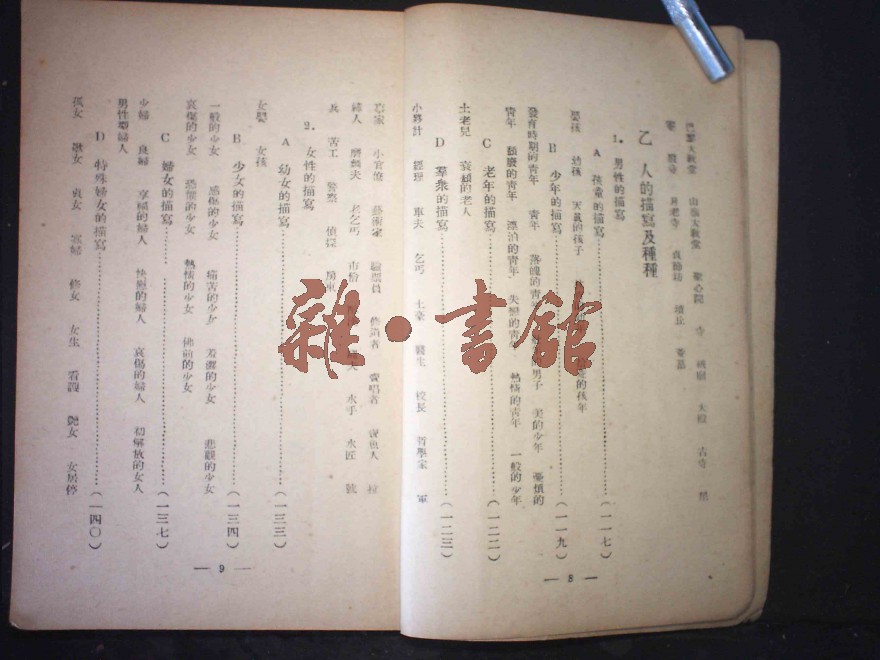 巴黎大教堂　山頂大教堂　聖心院　寺　桃廟　大殿　古寺　尼
乙　人的描寫及種種
1. 男性的描寫
A 孩童的描寫………(一一七)
嬰孩　幼孩　天眞的孩子　的孩年
B 少年的描寫………(一一九)
發育時期的青年　青年　落魄的青年　男子　美的少年　憂煩的
青年　頹廢的青年　漂泊的青年　失戀的青年　熱情的青年　一般的少年
C 老年的描寫………(一二二)
土老兒　衰頹的老人
D 羣衆的描寫………(一二三)
小夥計　經理　車夫　乞丐　土豪　醫生　校長　哲學家　軍
— 8 —
官家　小官僚　藝術家　驗票員　賣唱者　賣魚人
婦人　磨麵夫　老乞丐　市儈　水手　水匠　號
兵　苦工　警察　偵探　房東
2. 女性的描寫
A 幼女的描寫………(一三三)
女嬰　女孩
B 少女的描寫………(一三四)
一般的少女　感傷的少女　痛苦的少女　羞澀的少女　悲觀的少女
哀傷的少女　恐懼的少女　熱情的少女　佛前的少女
C 婦女的描寫………(一三七)
少婦　良婦　享福的婦人　快慰的婦人　哀傷的婦人　初解放的女人
男性型婦人
D 特殊婦女的描寫………(一四〇)
孤女　歌女　貞女　寡婦　修女　女生　看護　艶女　女居停
— 9 —
雜·書館